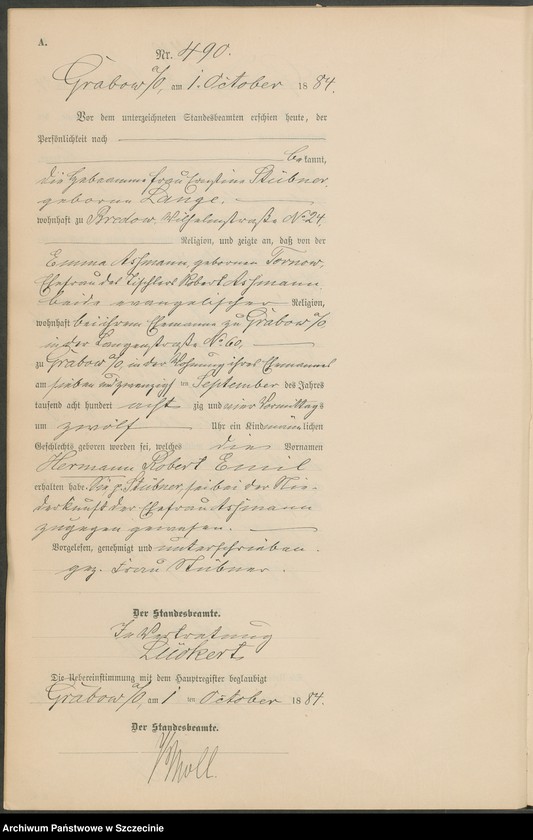 A.
Nr. 490.
Grabow a/O, am 1. October 1884.
Vor dem unterzeichneten Standesbeamten erschien heute, der
Persönlichkeit nach
bekannt,
die Hebeamme Frau Ernstine Stübner,
geborne Lange.
wohnhaft zu Bredow, Wilhelmstraße No 24,
Religion, und zeigte an, daß von der
Emma Assmann, gebornen Tornow,
Ehefrau des Tischlers Robert Assmann
beide evangelischer Religion,
wohnhaft bei ihrem Ehemanne zu Grabow a/O
in der Langenstraße No 60,
zu Grabow a/O, in der Wohnung ihres Ehemannes
am sieben und zwanzigsten September des Jahres
tausend acht hundert acht zig und vier Vormittags
um zwölf Uhr ein Kind männlichen
Geschlechts geboren worden sei, welches die Vornamen
Hermann Robert Emil
erhalten habe. Sie, p. Stübner, sei bei der Nie-
derkunft der Ehefrau Assmann
zugegen gewesen.
Vorgelesen, genehmigt und unterschrieben.
gez. Frau Stübner.
Der Standesbeamte.
In Vertretung
Lückert
Die Uebereinstimmung mit dem Hauptregister beglaubigt
Grabow a/O, am 1 ten October 1884.
Der Standesbeamte.
Moll.
Archiwum Państwowe w Szczecinie